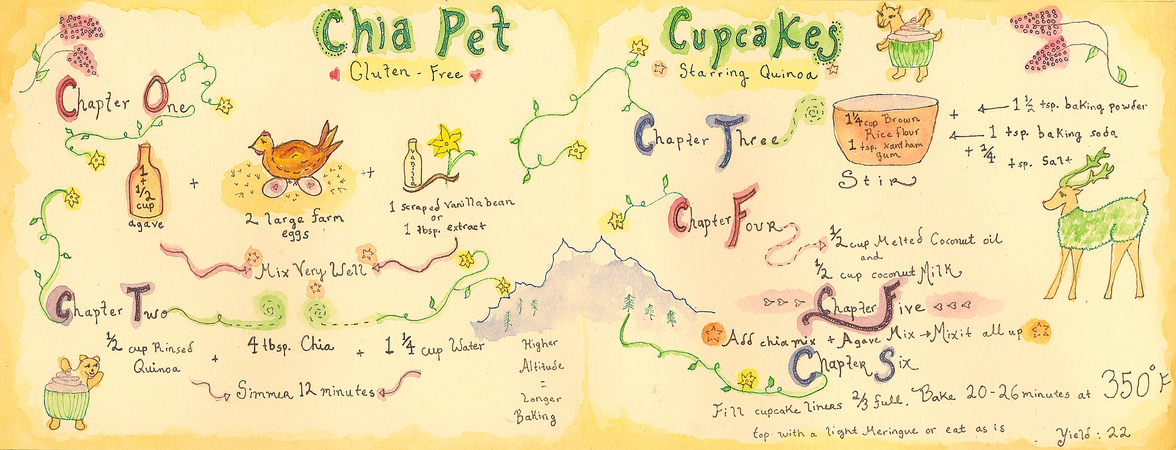 Chia Pet Cupcakes
Gluten - Free
Starring Quinoa
Chapter One
1
+
1/2
cup
agave
+
2 large farm
eggs
+
Vanilla
1 scraped vanilla bean
or
1 tbsp. extract
Mix Very Well
Chapter Two
1/2 cup Rinsed
Quinoa
+
4 tbsp. Chia
+
1 1/4 cup Water
Simmer 12 minutes
Higher
Altitude
=
Longer
Baking
Chapter Three
1 1/4 cup Brown
Rice flour
1 tsp. xantham
gum
Stir
+
1 1/2 tsp. baking powder
1 tsp. baking soda
+ 1/4 tsp. Salt
Chapter Four
1/2 cup Melted Coconut oil
and
1/2 cup coconut Milk
Chapter Five
Add chia mix + Agave Mix → Mix it all up
Chapter Six
Fill cupcake liners 2/3 full. Bake 20-26 minutes at 350°F
top with a light Meringue or eat as is
Yield: 22